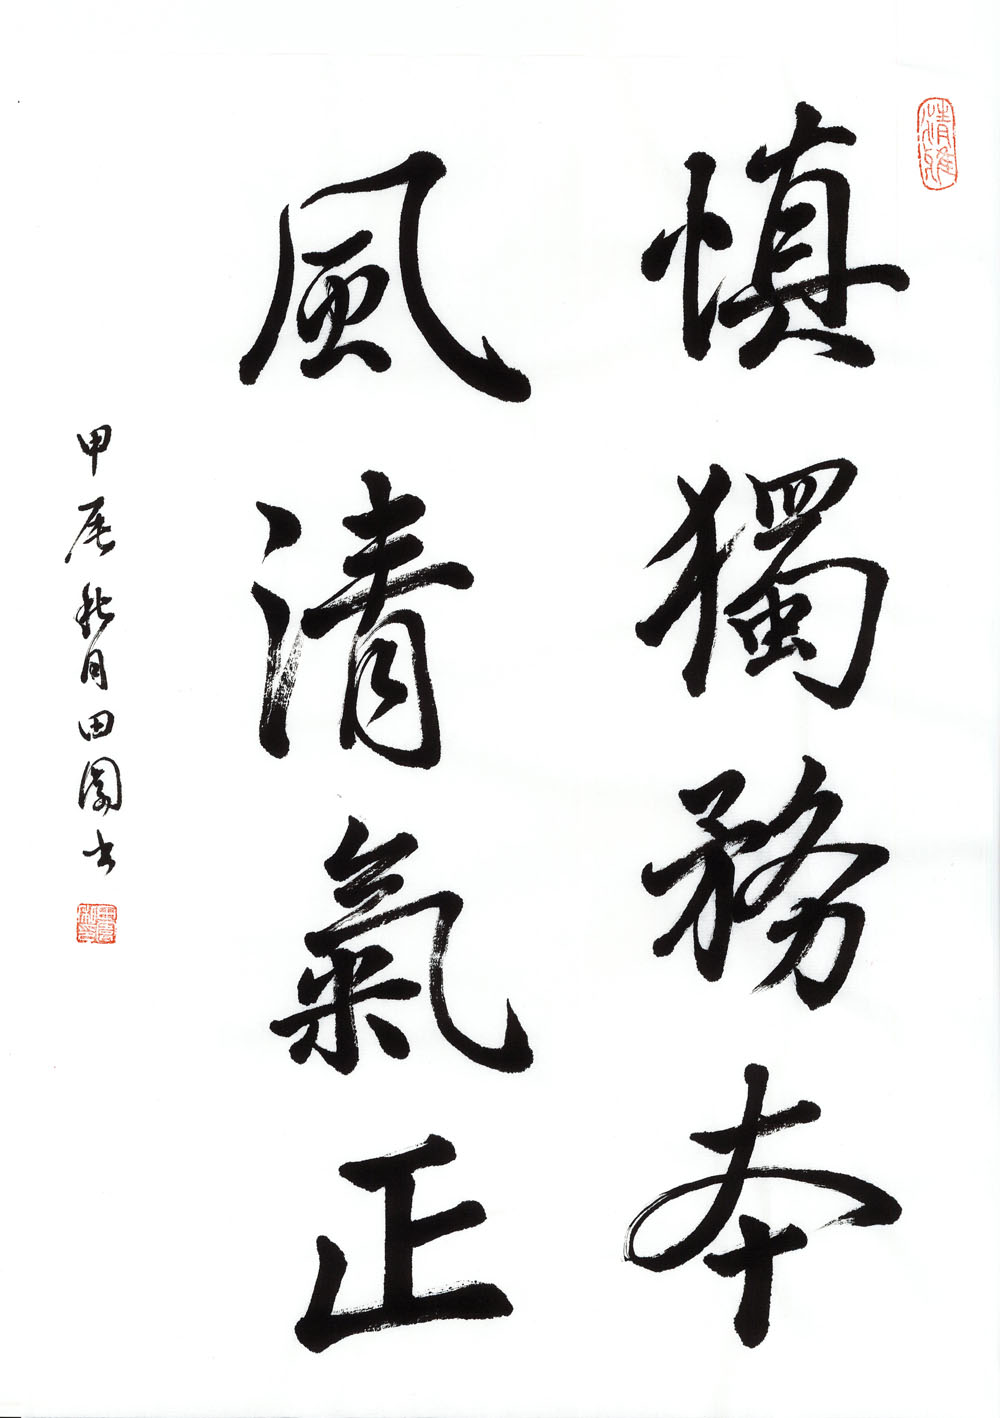 慎獨務本
風清氣正
甲辰秋月田園书
清雅